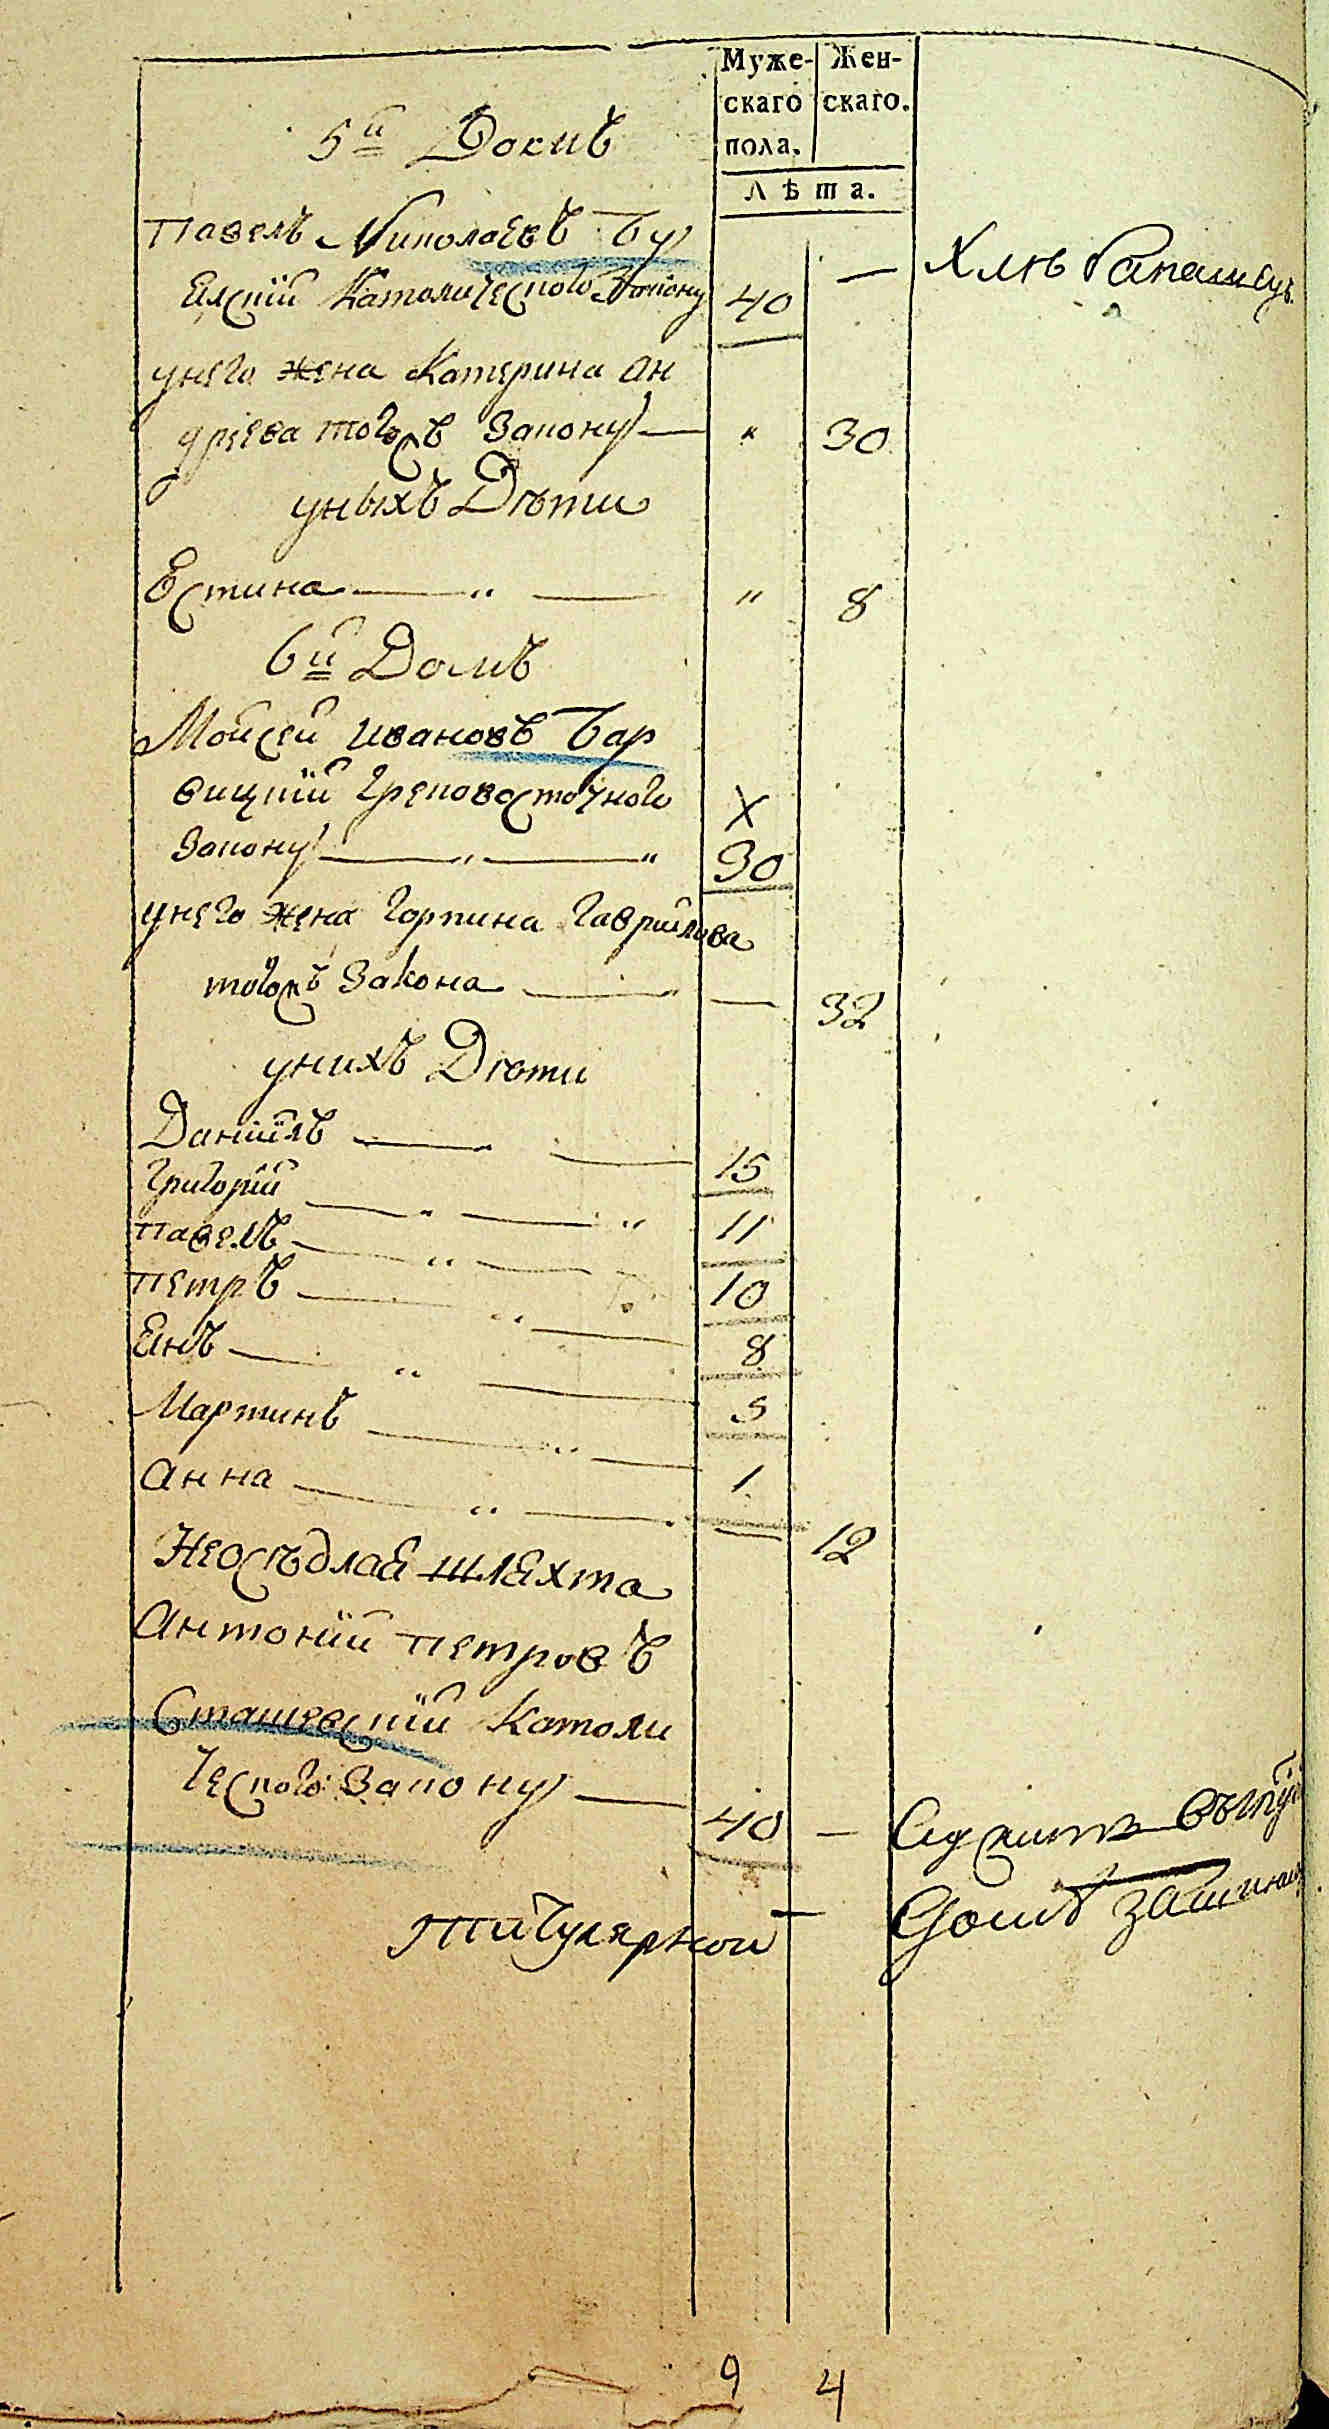 Муже- Жен-
скаго скаго.
пола.
Лѣта.
5й Домъ
Павелъ Николаевъ Бу
ялскій Католического Закону 40 —
унего жена Катерина Ан
дрεева тогожъ Закону — " 30
уныхъ Дѣти
Естина — " — " 8
6й Домъ
Мойсей Ивановъ Бар
вицкій Грековосточного X
Закону — " — " 30
унего жена Горпина Гаврилова
тогожъ Закона — — 32
унихъ Дѣти
Даніилъ — — 15
Григорій — " — " 11
Павелъ — " — 10
Петръ — " — 8
Янъ — " — 5
Мартинъ — " — 1
Анна — " — — 12
Неосѣдлая шляхта
Антоній Петровъ
Сташевскій Католи
ческого Закону — 40 —
9 4